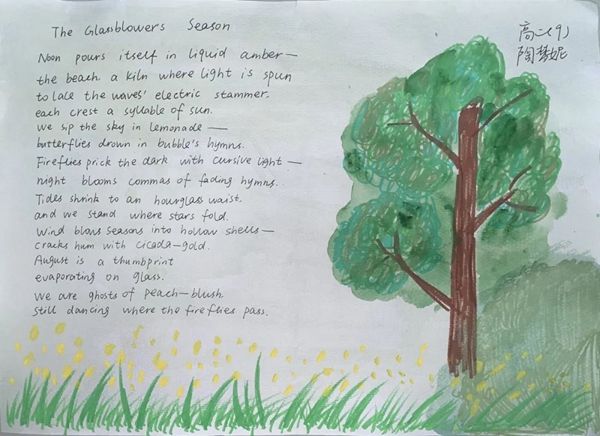 The Glassblower's Season
高二(9)
陶梦妮
Noon pours itself in liquid amber—
the beach a kiln where light is spun
to lace the waves' electric stammer.
each crest a syllable of sun.
We sip the sky in lemonade—
butterflies drown in bubble's hymns.
Fireflies prick the dark with cursive light—
night blooms commas of fading hymns.
Tides shrink to an hourglass waist.
and we stand where stars fold.
Wind blows seasons into hollow shells—
cracks hum with cicada-gold.
August is a thumbprint
evaporating on glass.
We are ghosts of peach-blush
still dancing where the fireflies pass.